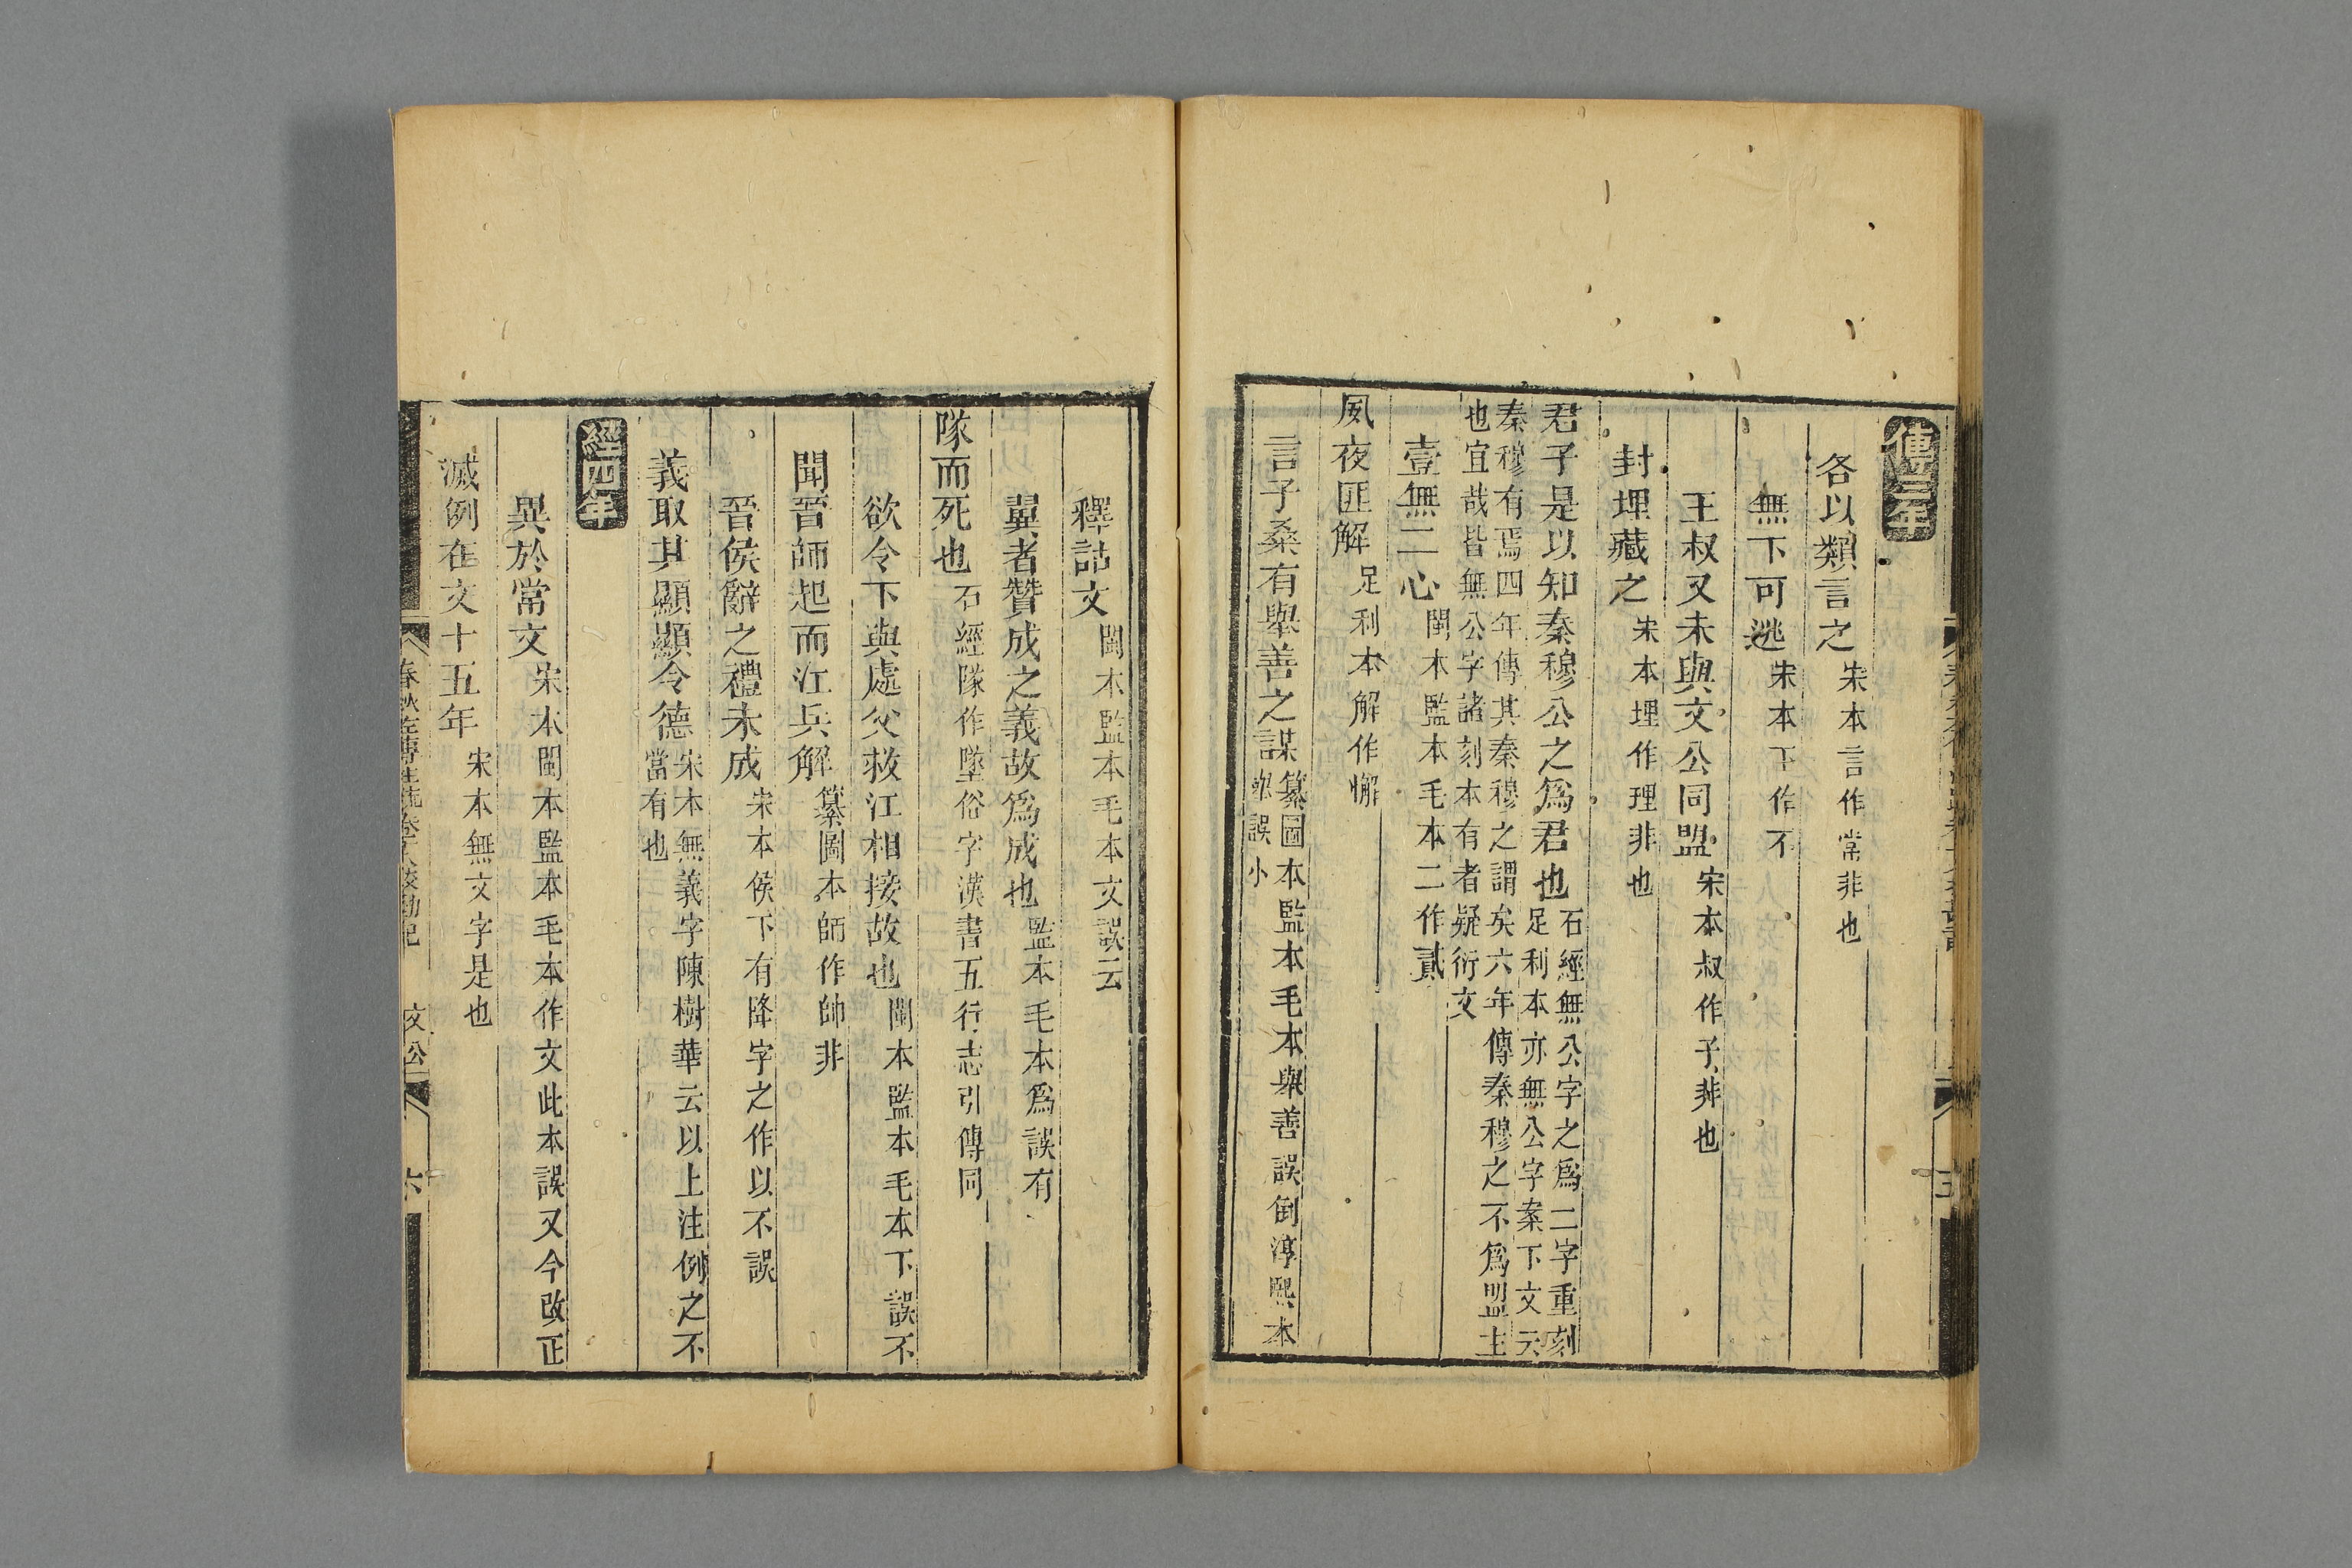 傳三年
各以類言之宋本言作常非也
無下可逃宋本下作不
王叔又未與文公同盟宋本叔作子非也
封埋藏之宋本埋作理非也
君子是以知秦穆公之爲君也石經無公字之爲二字重刻
足利本亦無公字案下文云
秦穆有焉四年傳其秦穆之謂矣六年傳秦穆之不爲盟主
也宜哉皆無公字諸刻本有者疑衍文
壹無二心閩本監本毛本二作貳
夙夜匪解足利本解作懈
言子桑有舉善之謀纂圖本監本毛本舉善誤倒淳熙本
舉誤小
釋詁文閩本監本毛本文誤云
翼者贊成之義故爲成也監本毛本爲誤有
隊而死也石經隊作墜俗字漢書五行志引傳同
欲令下與處父救江相接故也閩本監本毛本下誤不
聞晉師起而江兵解纂圖本師作帥非
晉侯辭之禮未成宋本侯下有降字之作以不誤
義取其顯顯令德宋本無義字陳樹華云以上注例之不
當有也
經四年
異於常文宋本閩本監本毛本作文此本誤又今改正
滅例在文十五年宋本無文字是也
春秋左傳注疏卷十八校勘記 文公 六